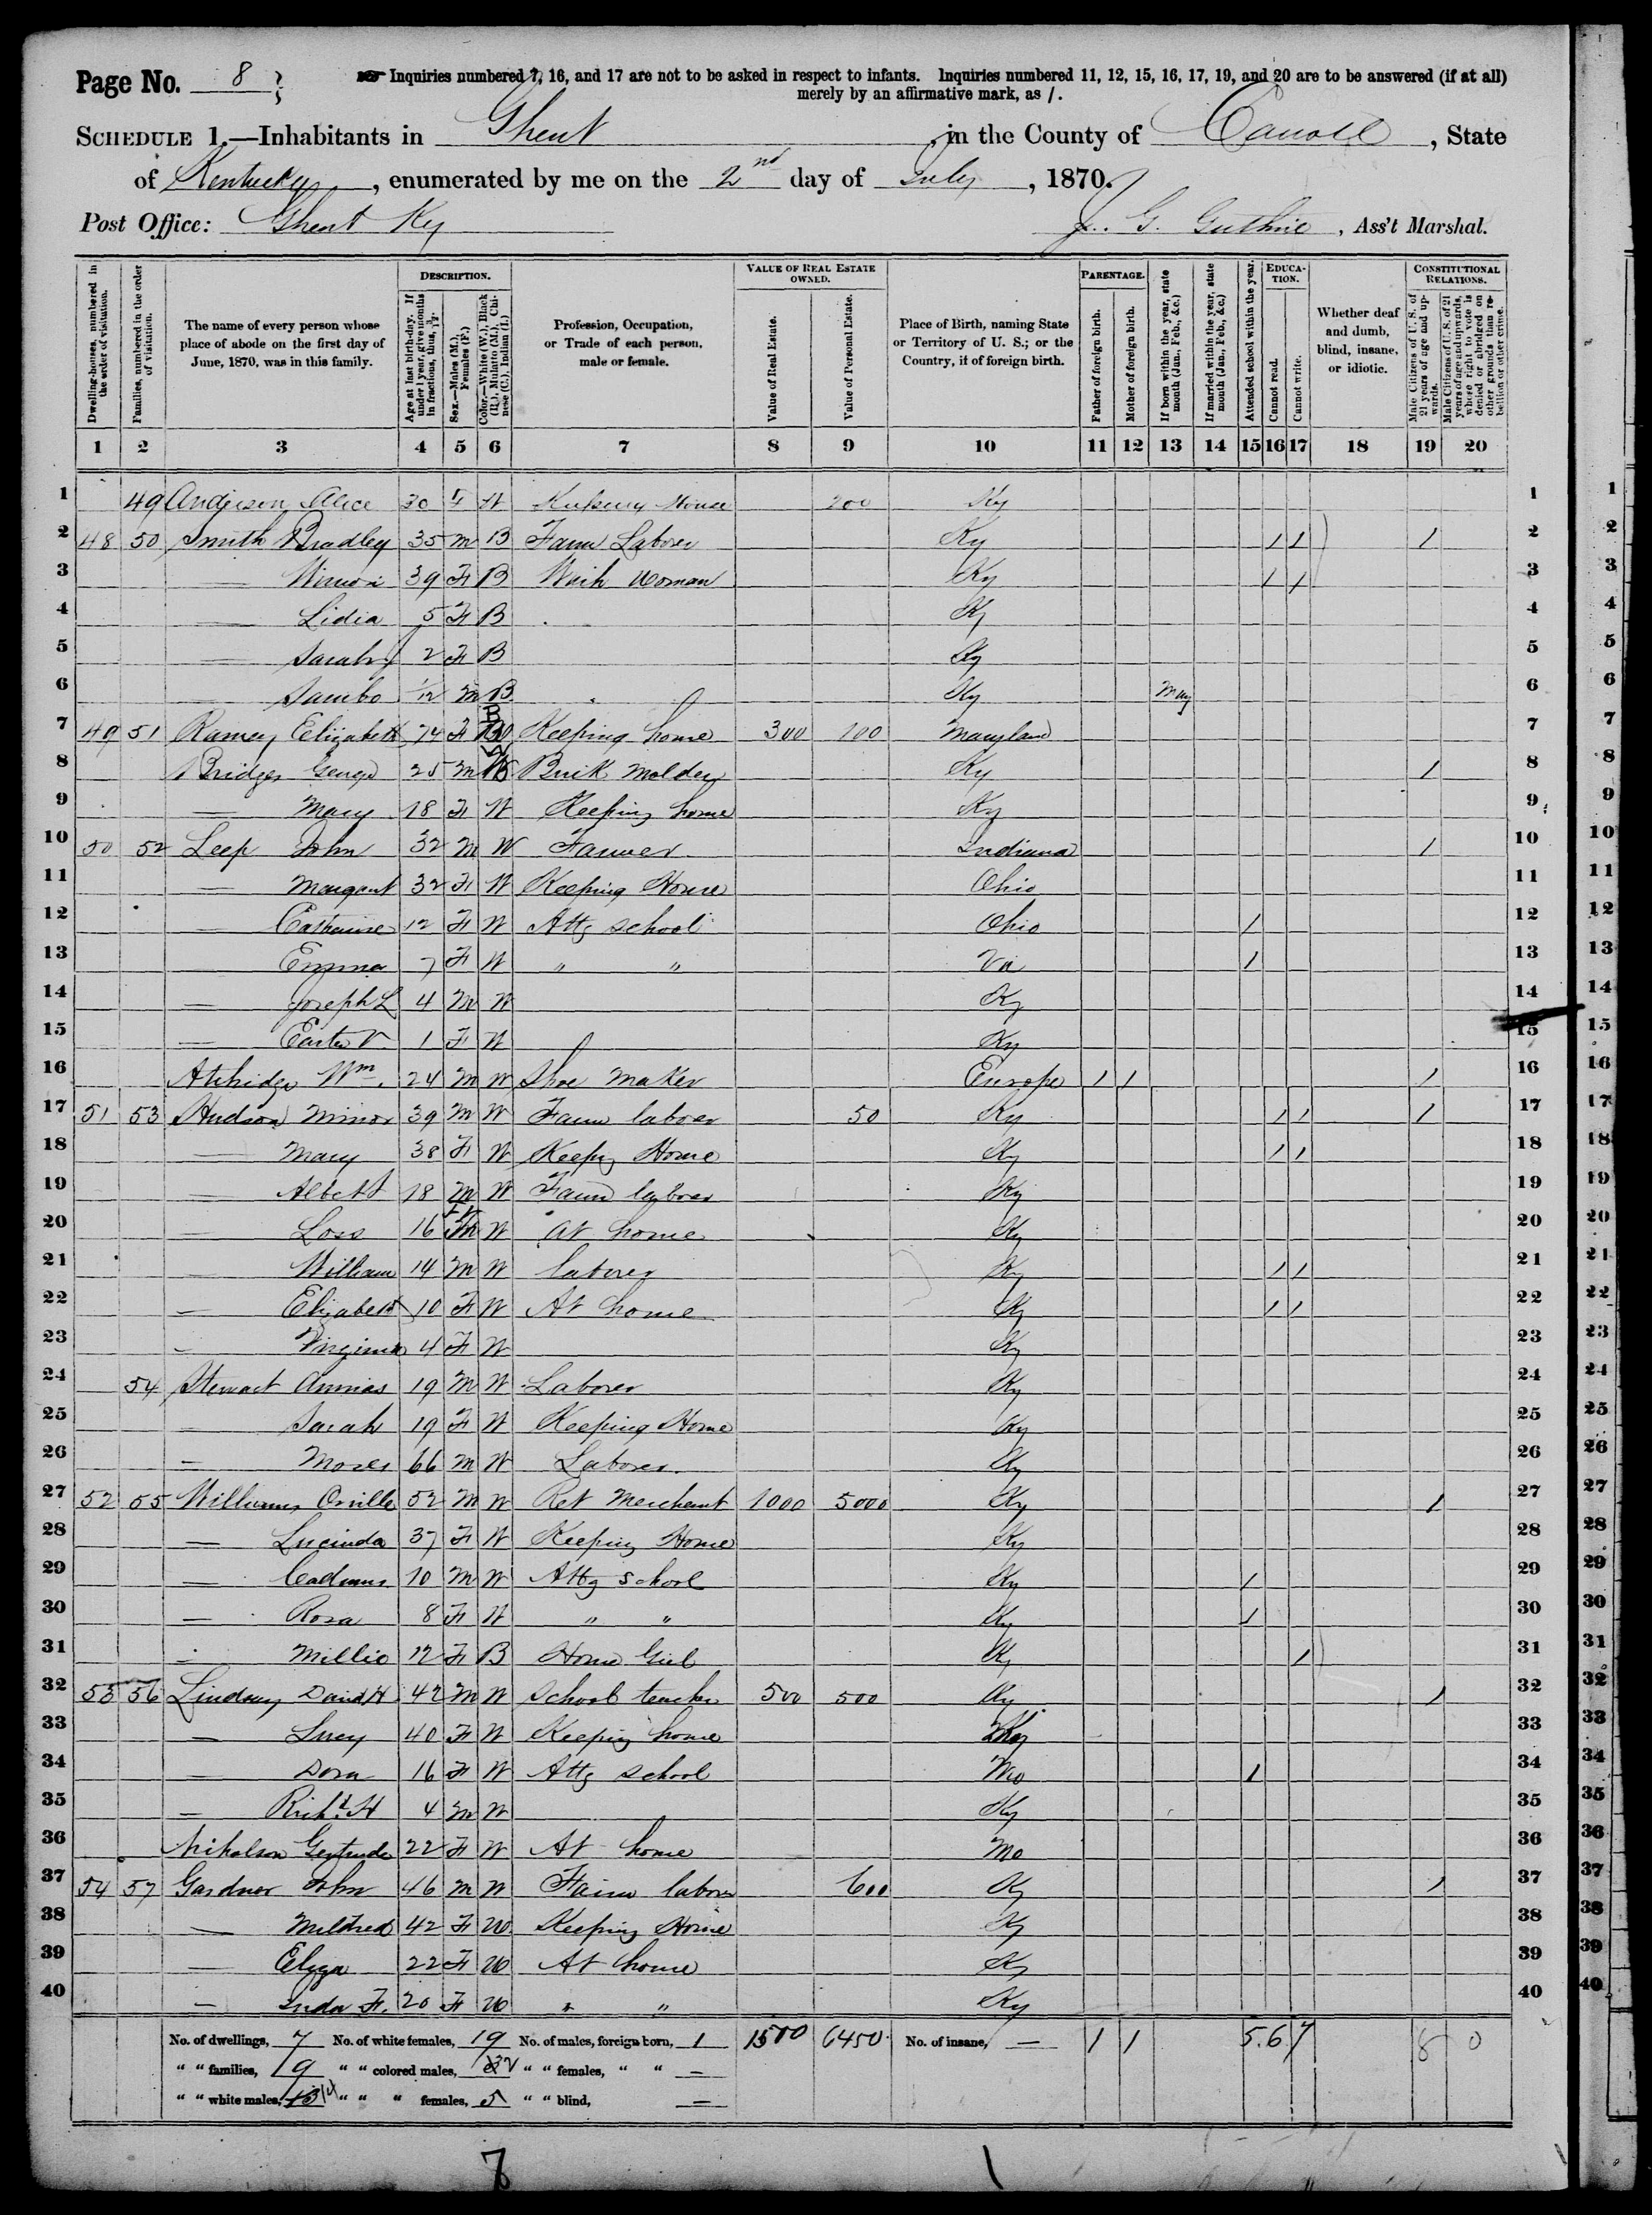 Page No. 8
Inquiries numbered 7, 16, and 17 are not to be asked in respect to infants. Inquiries numbered 11, 12, 15, 16, 17, 19, and 20 are to be answered (if at all)
merely by an affirmative mark, as /.
SCHEDULE 1.—Inhabitants in Ghent, in the County of Carroll, State
of Kentucky, enumerated by me on the 2nd day of July, 1870.
Post Office: Ghent Ky J. G. Guthrie, Ass't Marshal.
Dwelling-houses, numbered in the order of visitation.
Families, numbered in the order of visitation.
The name of every person whose place of abode on the first day of June, 1870, was in this family.
DESCRIPTION.
Age at last birth-day. If under 1 year, give months in fractions, thus, 3/12.
Sex.—Males (M.), Females (F.)
Color.—White (W.), Black (B.), Mulatto (M.), Chinese (C.), Indian (I.)
Profession, Occupation, or Trade of each person, male or female.
VALUE OF REAL ESTATE OWNED.
Value of Real Estate.
Value of Personal Estate.
Place of Birth, naming State or Territory of U. S.; or the Country, if of foreign birth.
PARENTAGE.
Father of foreign birth.
Mother of foreign birth.
If born within the year, state month (Jan., Feb., &c.)
If married within the year, state month (Jan., Feb., &c.)
Attended school within the year.
EDUCATION.
Cannot read.
Cannot write.
Whether deaf and dumb, blind, insane, or idiotic.
CONSTITUTIONAL RELATIONS.
Male Citizens of U. S. of 21 years of age and upwards.
Male Citizens of U. S. of 21 years of age and upwards, where right to vote is denied or abridged on other grounds than rebellion or other crime.
1 2 3 4 5 6 7 8 9 10 11 12 13 14 15 16 17 18 19 20
1 49 Anderson Alice 30 F W Keeping House 200 Ky 1
2 48 50 Smith Bradley 35 M B Farm Laborer Ky / / / 2
3 — 39 F B Wash Woman Ky / / 3
4 — Lidia 5 F B Ky 4
5 — Sarah 2 F B Ky 5
6 — Sambo 1/12 M B Ky May 6
7 49 51 Ramey Elizabeth 74 F B Keeping home 300 100 Maryland 7
8 Bridges George 25 M W Brick Molder Ky / 8
9 — Mary 18 F W Keeping home Ky 9
10 50 52 Leep John 32 M W Farmer Indiana / 10
11 — Margaret 32 F W Keeping House Ohio 11
12 — Catherine 12 F W Attg school Ohio / 12
13 — Emma 7 F W " " Va / 13
14 — Joseph L 4 M W Ky 14
15 — Easter V. 1 F W Ky 15
16 Wm. 24 M W Shoe Maker Europe / / / 16
17 51 53 Hudson Minor 39 M W Farm laborer 50 Ky / / / 17
18 — Mary 38 F W Keepg House Ky / / 18
19 — Albert 18 M W Farm laborer Ky 19
20 — 16 F W At home Ky 20
21 William 14 M W laborer Ky / / 21
22 — Elizabeth 10 F W At home Ky / / 22
23 - Virginia 4 F W Ky 23
24 54 Stewart 19 M W Laborer Ky 24
25 - Sarah 19 F W Keeping Home Ky 25
26 - Moses 66 M W Laborer Ky 26
27 52 55 Williams Orville 52 M W Ret Merchant 1000 5000 Ky / 27
28 — Lucinda 37 F W Keeping Home Ky 28
29 — Cadmus 10 M W Attg School Ky / 29
30 — Rosa 8 F W " " Ky / 30
31 - Millie 12 F B House Girl Ky / 31
32 53 56 Lindsay David H 42 M W School teacher 500 500 Ky / 32
33 — Lucy 40 F W Keeping home Ky 33
34 — Dora 16 F W Attg school Mo / 34
35 — Richd. H 4 M W Ky 35
36 Nicholson Gertrude 22 F W At home Mo 36
37 54 57 Gardner John 46 M W Farm laborer 600 Ky / 37
38 — Mildred 42 F W Keeping Home Ky 38
39 — Eliza 22 F W At home Ky 39
40 — F. 20 F W " " Ky 40
No. of dwellings, 7 No. of white females, 19 No. of males, foreign born, 1 1500 6450 No. of insane, — 1 1 5 6 7 8 0
" " families, 9 " " colored males, 2 " " females, " " —
" " white males, 14 " " " females, 5 " " blind, —
8